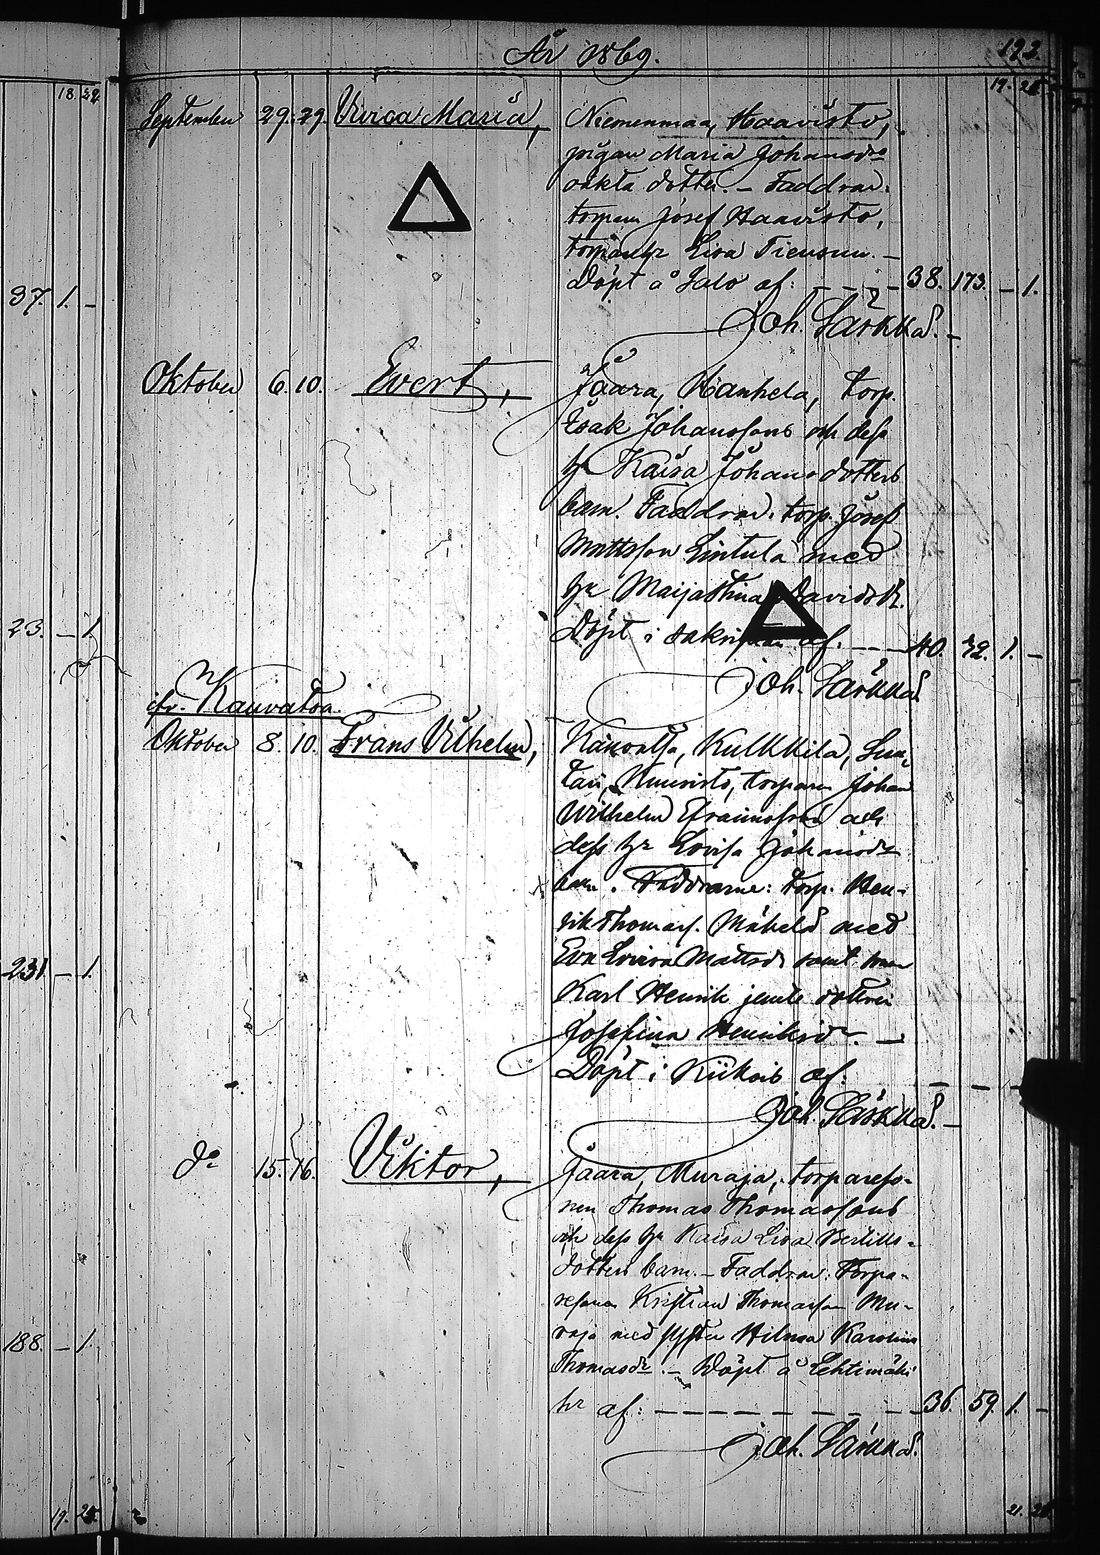 År 1869.
193.
18. 22.
19. 26
September 29. 29. Vivica Maria,
Niemenmaa, Haavisto,
pigan Maria Johansdr
oäkta dotter. – Faddrar:
torparen Josef Haavisto,
Eva Tiensuu. –
Döpt å Jalo af: – – – – 38. 173. – 1.
37. 1. –
Joh. Särkkä. –
Oktober 6. 10. Evert,
Jaara, Hankela, torp.
Isak Johanssons och dess
hr Kaisa Johansdotters
barn. Faddrar: torp. Josef
Mattsson Lintula med
hr Maija Stina Davidsdr.
23. – 1.
Döpt i sakristian af. – – – 40. 1. –
Joh. Särkkä.
ifr. Kauvatsa.
Oktober 8. 10. Frans Vilhelm,
Kauvatsa, Kulkkila,
torparen Johan
Wilhelm Efraimsson och
dess hr Lovisa Johansdr
barn. Faddrarne: torp. Hen-
rik Thomass. Mäkelä med
Eva Lovisa Mattsdr samt
231. – 1.
Karl Henrik jemte dottren
Josefina Henriksdr. –
Döpt i Kiikois af: – – –
Joh. Särkkä. –
do 15. 16. Viktor,
Jaara, Muraja, torpareso-
nen Thomas Thomassons
och dess hr Kaisa Liva Bertills-
dotters barn. – Faddrar: Torpa-
resonen Kristian Thomasson Mu-
raja med syster Hilma Karolina
188. – 1.
Thomasdr. – Döpt å Lehtimäki
af: – – – – – – – – 36. 59. 1. –
Joh. Särkkä.
19. 25.
21. 28